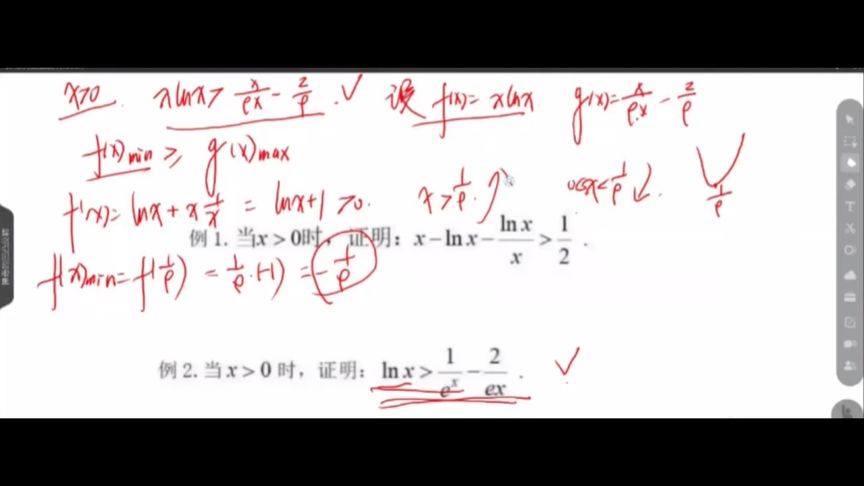 x>0. xlnx > x/eˣ - 2/e. ✓ 设 f(x)= xlnx g(x)= x/eˣ - 2/e
f(x)min ≥ g(x)max
f'(x)= lnx + x 1/x = lnx+1 >0. x > 1/e. ↗ 0<x<1/e ↓. 1/e
例 1. 当x>0时，证明：x-ln x-ln x/x > 1/2 .
f(x)min = f(1/e) = 1/e·(-1) = -1/e
例 2. 当 x>0 时，证明：ln x > 1/eˣ - 2/ex . ✓